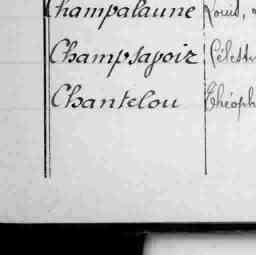 Champalaune Louis,
Champsavoir Célest
Chantelou Théoph